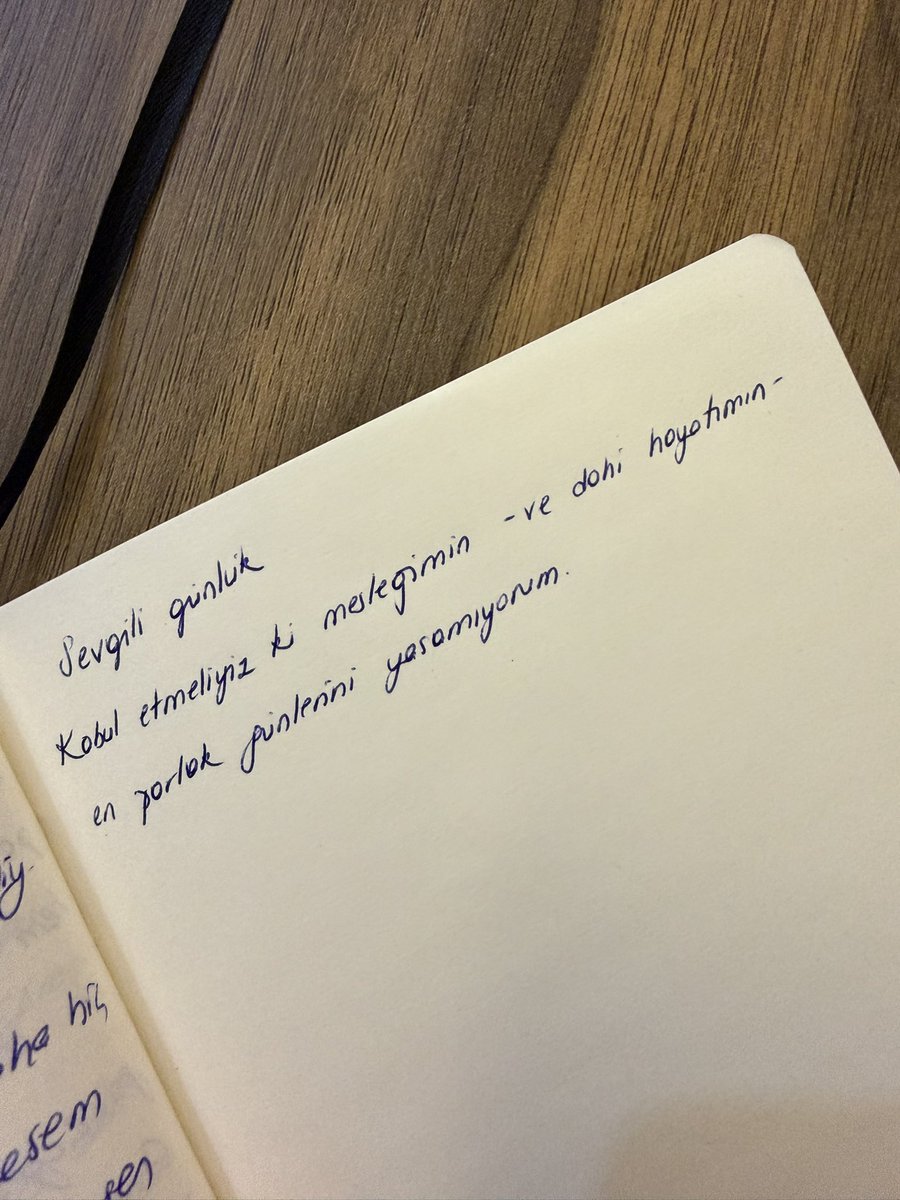 hiç
esem
sen
Sevgili günlük
Kabul etmeliyiz ki mesleğimin -ve dahi hayatımın-
en parlak günlerini yaşamıyorum.